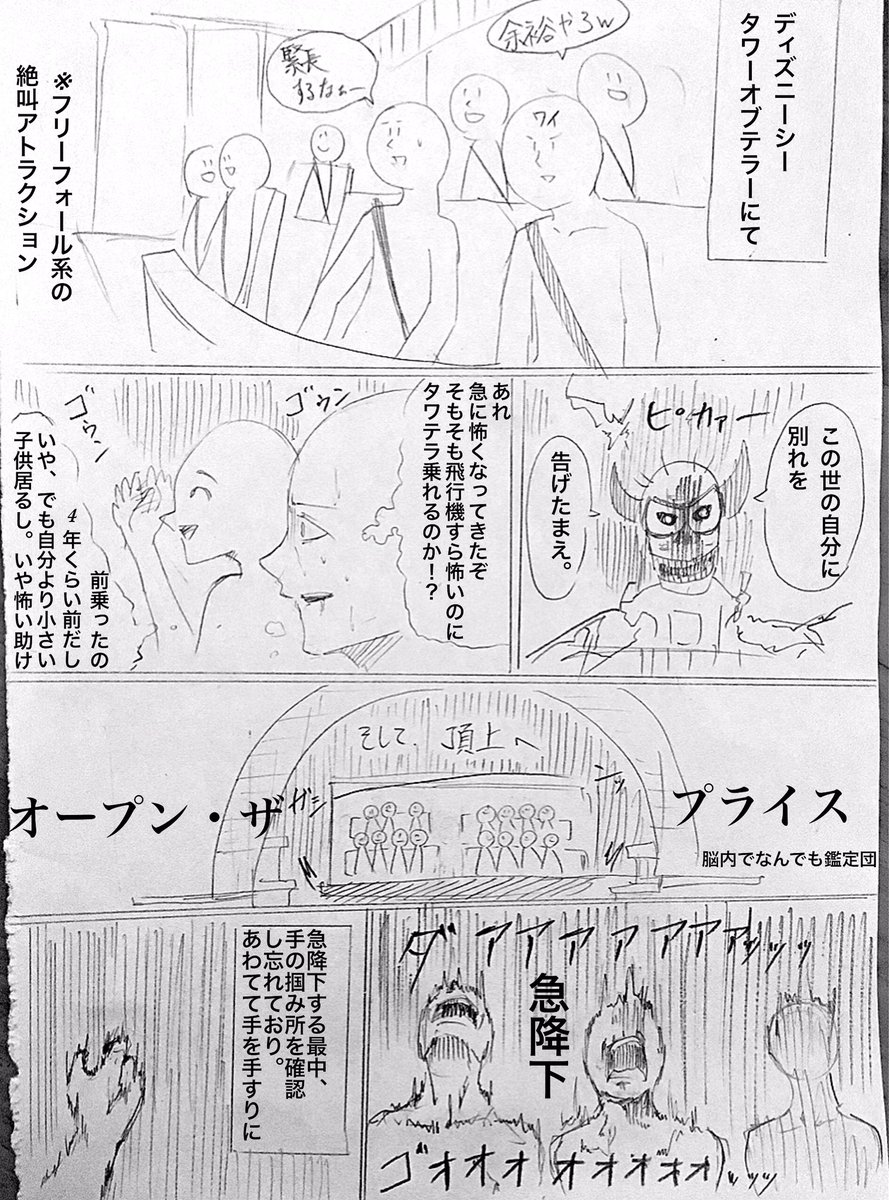 ディズニーシー
タワーオブテラーにて
余裕やろw
ワイ
緊長
するなぁー
※フリーフォール系の
絶叫アトラクション
ピカァー
この世の自分に
別れを
告げたまえ。
あれ
急に怖くなってきたぞ
そもそも飛行機すら怖いのに
タワテラ乗れるのか!?
ゴウン
ゴウン
前乗ったの
4年くらい前だし
いや、でも自分より小さい
子供居るし。いや怖い助け
そして、頂上へ
ガシ
ンッ
オープン・ザ
プライス
脳内でなんでも鑑定団
ダァアァァァアァッッッ
急降下
ゴオオオオオオオオッッッ
急降下する最中、
手の掴み所を確認
し忘れており。
あわてて手を手すりに